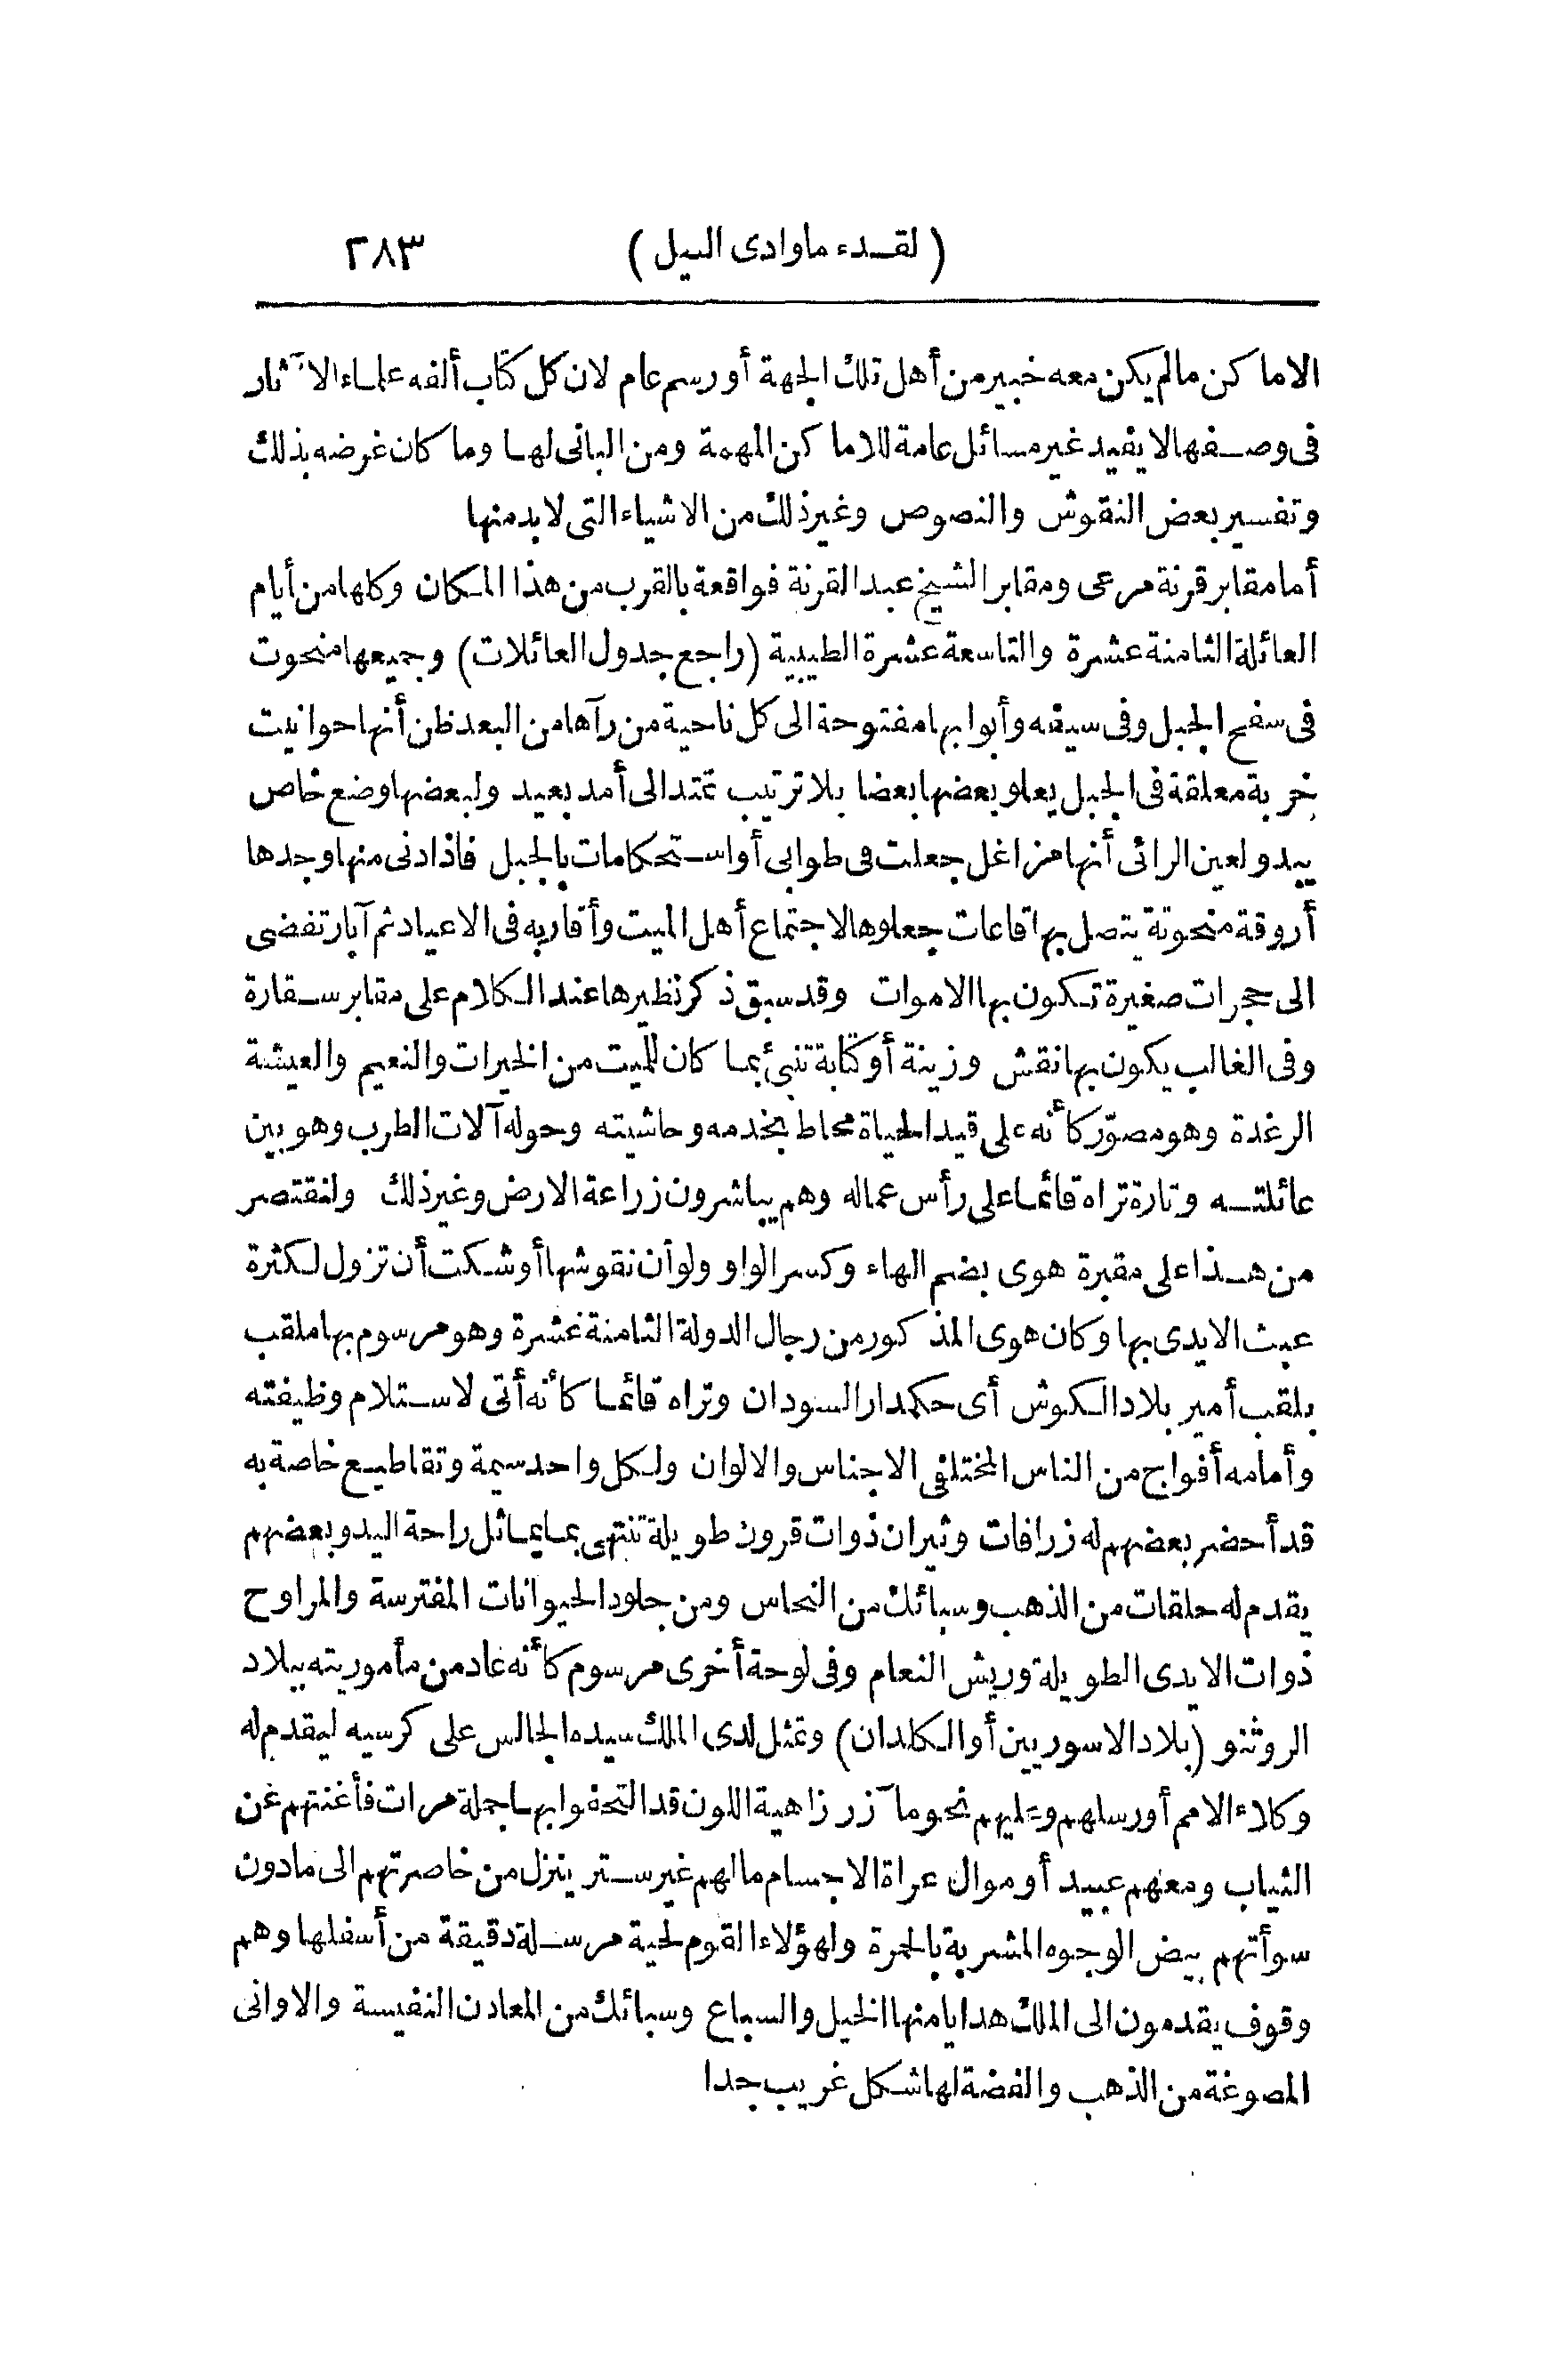 (لقدماء وادى النيل) ٢٨٣
الاماكن مالم يكن معه خبير من أهل تلك الجهة أو رسم عام لان كل كتاب ألفه علماء الآثار
فى وصفها لا يفيد غير مسائل عامة للاماكن المهمة ومن البانى لها وما كان غرضه بذلك
وتفسير بعض النقوش والنصوص وغير ذلك من الاشياء التى لا بد منها
أما مقابر قرنة مرعى ومقابر الشيخ عبد القرنة فواقعة بالقرب من هذا المكان وكلها من أيام
العائلة الثامنة عشرة والتاسعة عشرة الطيبية (راجع جدول العائلات) وجميعها منحوت
فى سفح الجبل وفى سيفه وأبوابها مفتوحة الى كل ناحية من رآها من البعد ظن أنها حوانيت
خربة معلقة فى الجبل يعلو بعضها بعضا بلا ترتيب تمتد الى أمد بعيد ولبعضها وضع خاص
يبدو لعين الرائى أنها مزاغل جعلت فى طوابى أو استحكامات بالجبل فاذا دنى منها وجدها
أروقة منحوتة يتصل بها قاعات جعلوها لاجتماع أهل الميت وأقاربه فى الاعياد ثم آبار تفضى
الى حجرات صغيرة تكون بها الاموات وقد سبق ذكر نظيرها عند الكلام على مقابر سقارة
وفى الغالب يكون بها نقش وزينة أو كتابة تنبئ بما كان للميت من الخيرات والنعيم والعيشة
الرغدة وهو مصوّر كأنه على قيد الحياة محاط بخدمه وحاشيته وحوله آلات الطرب وهو بين
عائلته وتارة تراه قائما على رأس عماله وهم يباشرون زراعة الارض وغير ذلك ولنقتصر
من هذا على مقبرة هوى بضم الهاء وكسر الواو ولو أن نقوشها أوشكت أن تزول لكثرة
عبث الايدى بها وكان هوى المذكور من رجال الدولة الثامنة عشرة وهو مرسوم بها ملقب
بلقب أمير بلاد الكوش أى حكمدار السودان وتراه قائما كأنه أتى لاستلام وظيفته
وأمامه أفواج من الناس المختلفى الاجناس والالوان ولكل واحد سيمة وتقاطيع خاصة به
قد أحضر بعضهم له زرافات وثيران ذوات قرون طويلة تنتهى بما يماثل راحة اليد وبعضهم
يقدم له حلقات من الذهب وسبائك من النحاس ومن جلود الحيوانات المفترسة والمراوح
ذوات الايدى الطويلة وريش النعام وفى لوحة أخرى مرسوم كأنه عاد من مأموريته ببلاد
الروثنو (بلاد الاسوريين أو الكلدان) وتمثل لدى الملك سيده الجالس على كرسيه ليقدم له
وكلاء الامم أو رسلهم وعليهم نحو مآزر زاهية اللون قد التحفوا بها جملة مرات فأغنتهم عن
الثياب ومعهم عبيد أو موال عراة الاجسام ما لهم غير ستر ينزل من خاصرتهم الى ما دون
سوأتهم بيض الوجوه المشربة بالحمرة ولهؤلاء القوم لحية مرسلة دقيقة من أسفلها وهم
وقوف يقدمون الى الملك هدايا منها الخيل والسباع وسبائك من المعادن النفيسة والاوانى
المصوغة من الذهب والفضة لها شكل غريب جدا